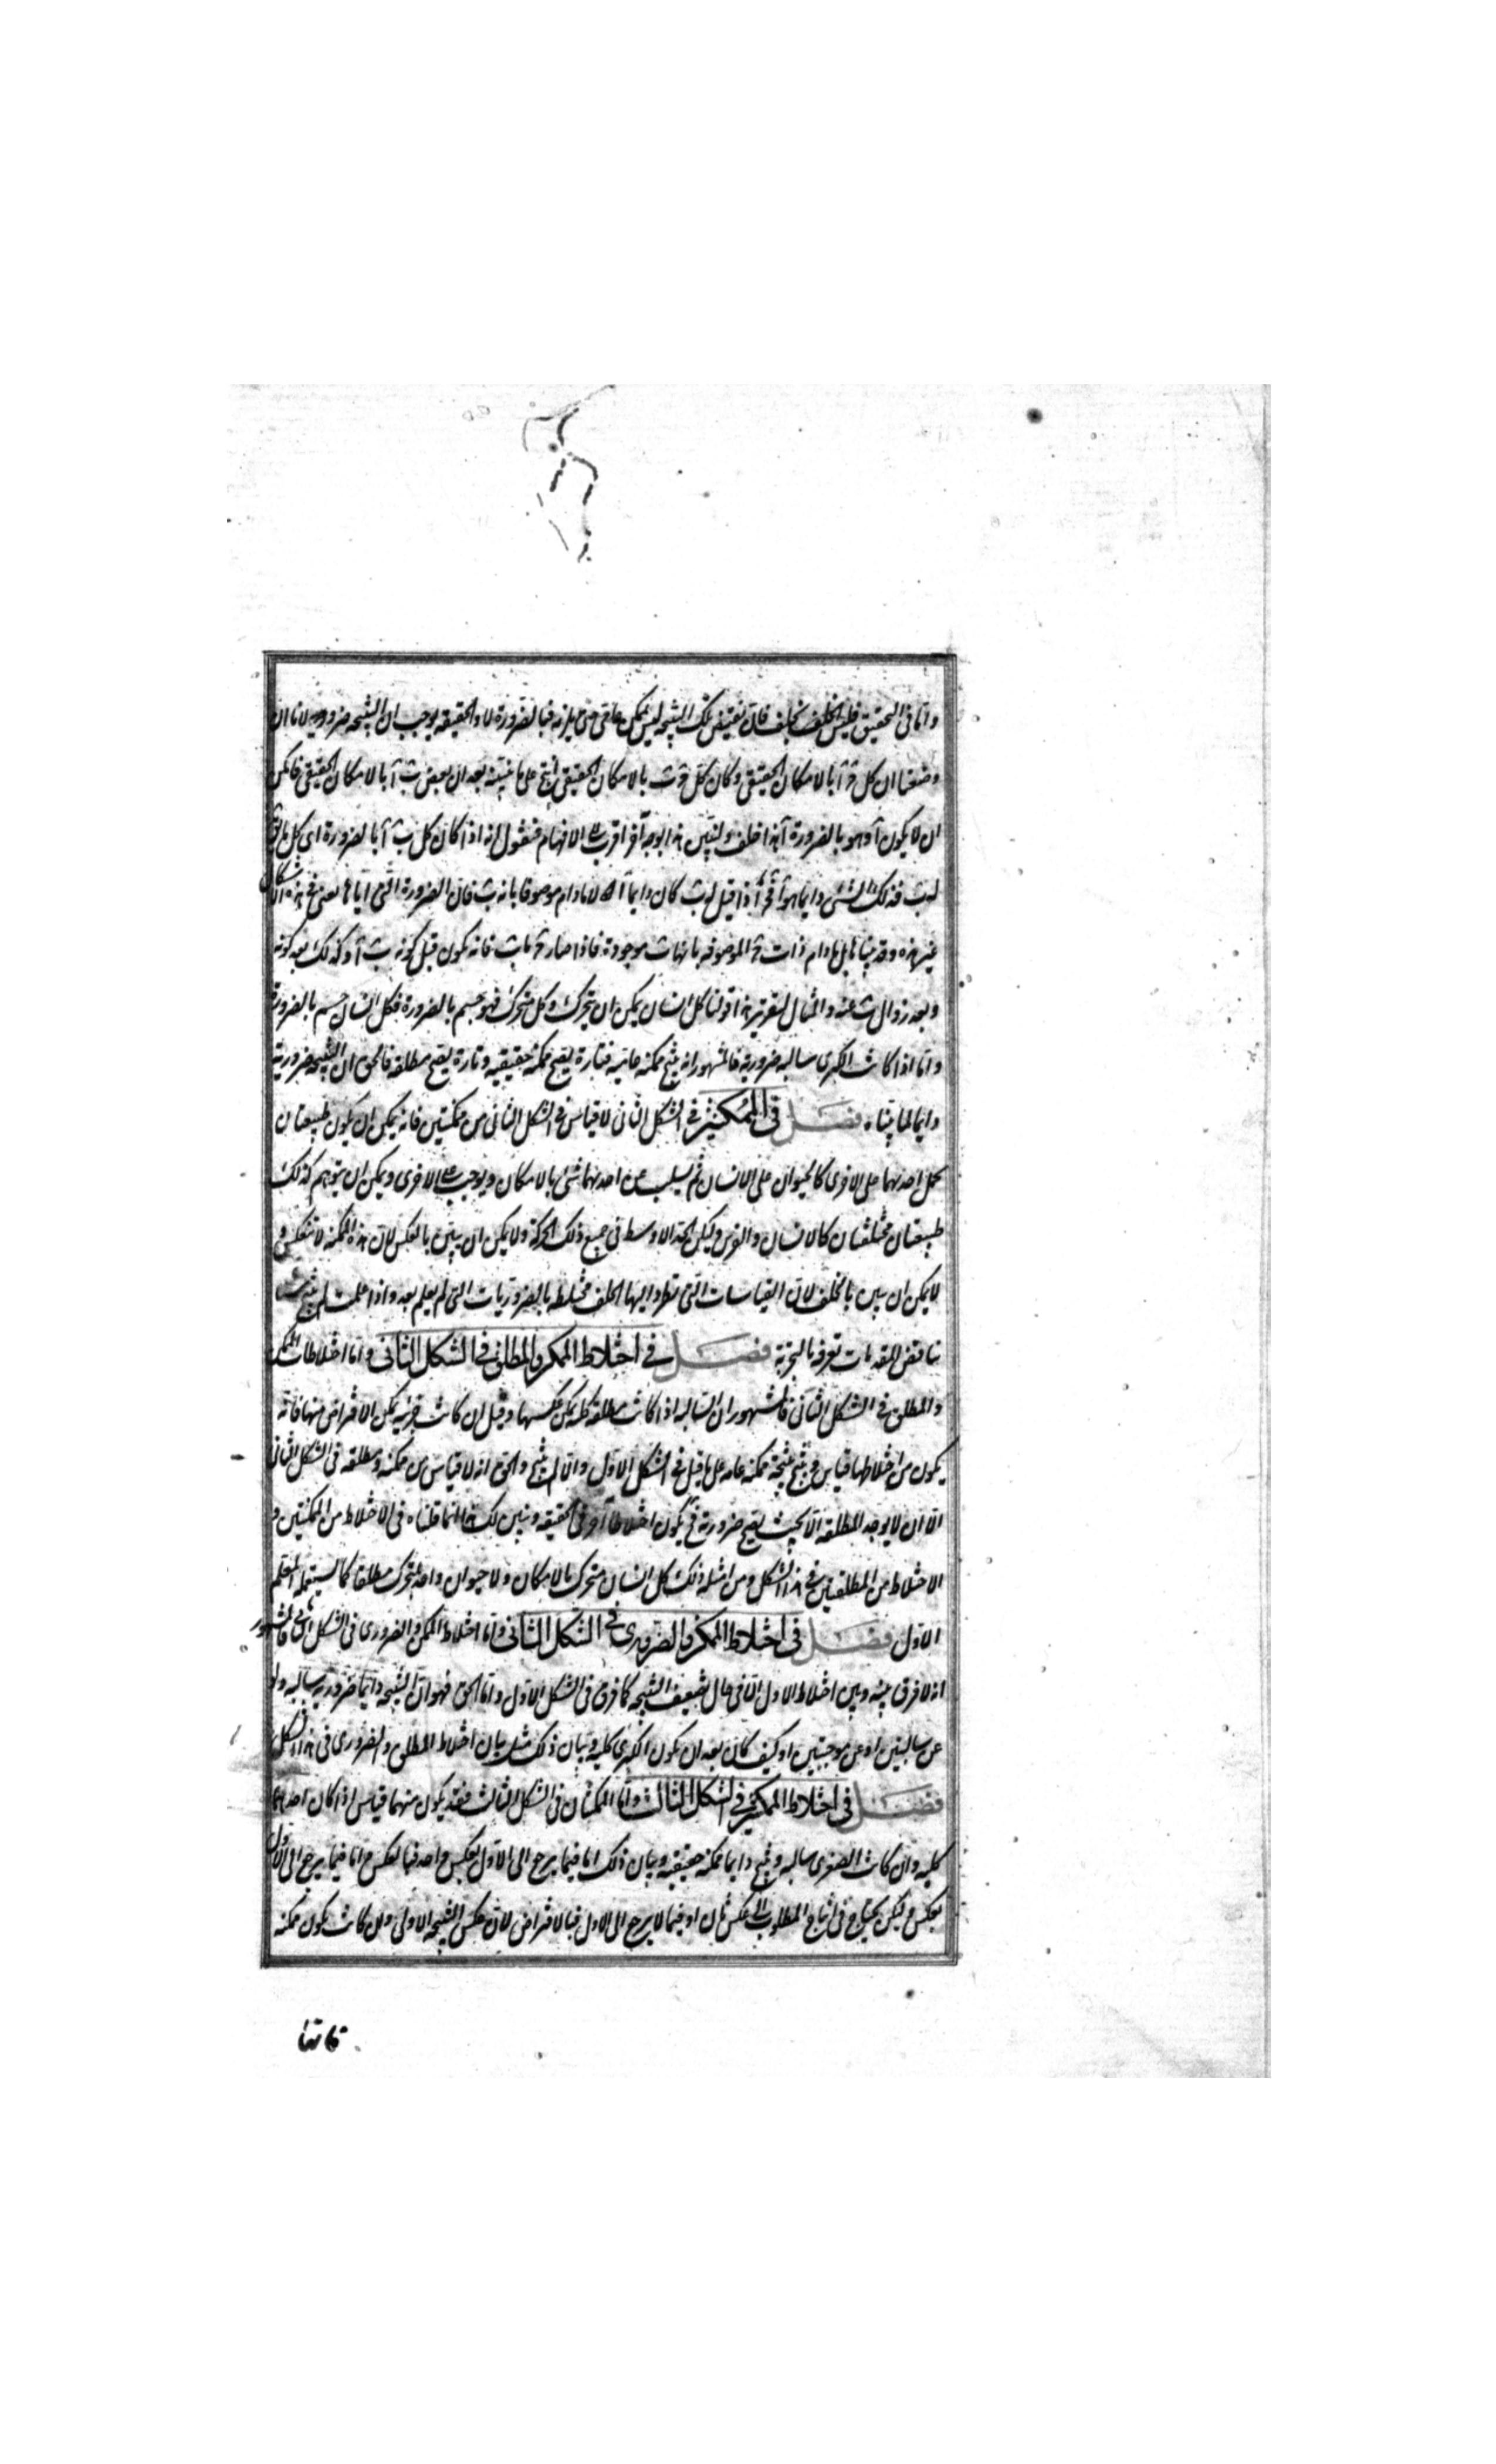 واما فى التحقيق فليس الخلف بخلف فان نقيض تلك النتيجة ليس بممكن عامى حتى يلزمه فبالضرورة لا والحقيقة يوجب ان النتيجة ضرورية لانا ان
وضعنا ان كل ج آ بالامكان الحقيقى وكان كل ج ب بالامكان الحقيقى انتج على ما نبينه بعد ان بعض ب آ بالامكان الحقيقى فامكن
ان لا يكون آ وهو بالضرورة آ هذا خلف ولنبين هذا بوجه آخر اقرب الى الافهام فنقول انه اذا كان كل ب آ بالضرورة اى كل ما
ب فذلك الشئ دايما هو آ فج اذا قيل له ب كان دايما آ لا ما دام موصوفا بانه ب فان الضرورة التى اياها نعنى فى هذه الاشكال
غير هذه وقد بينا بل ما دام ذات ج الموصوفة بانها ب موجودة فاذا صار ج ما ب فانه يكون قبل كونه ب آ وكذلك بعد كونه
وبعد زوال ب عنه والمثال لتقرير هذا قولنا كل انسان يمكن ان يتحرك وكل متحرك فهو جسم بالضرورة فكل انسان جسم بالضرورة
واما اذا كانت الكبرى سالبه ضرورية فالمشهور انه ينتج ممكنه عاميه فتارة يصح ممكنه حقيقيه وتارة يصح مطلقه فالحق ان النتيجه ضرورية
دايما لما بيناه فصل فى الممكنين فى الشكل الثانى لا قياس فى الشكل الثانى من ممكنتين فانه يمكن ان يكون طبيعتان
تحمل احدنهما على الاخرى كالحيوان على الانسان ثم يسلب عن احدنهما شئ بالامكان ويوجب على الاخرى ويمكن ان يتوهم كذلك
طبيعتان مختلفتان كالانسان والفرس وليكن الحد الاوسط فى جميع ذلك الحركة ولا يمكن ان يبين بالعكس لان هذه الممكنه لا تنعكس و
لا يمكن ان يبين بالخلف لان القياسات التى تطرد اليها الخلف مختلطه بالضروريات التى لم يعلم بعد واذا علمت لم ينتج شيئا
يناقض المقدمات تعرفه بالتجربة فصل فى اختلاط الممكن والمطلق فى الشكل الثانى واما اختلاطات الممكن
والمطلق فى الشكل الثانى فالمشهور ان السالبه اذا كانت مطلقه كليه يمكن عكسها وقيل ان كانت جزئيه يمكن الافتراض منها فانه
يكون من اختلاطها قياس وينتج نتيجة ممكنه عامه على ما قيل فى الشكل الاول والا لم ينتج والحق انه لا قياس من ممكنه ومطلقه فى الشكل الثانى
الا ان لا يوجد المطلقه الا بحيث يصح ضرورية فيكون اختلاطا آخر فى الحقيقه ونبين لك هذا انما قلناه فى الاختلاط من الممكنتين و
الاختلاط من المطلقتين فى هذا الشكل ومن امثله ذلك كل انسان متحرك بالامكان ولا حيوان واحد بمتحرك مطلقا كما يستعمله المعلم
الاول فصل فى اختلاط الممكن والضرورى فى الشكل الثانى واما اختلاط الممكن والضرورى فى الشكل الثانى فالمشهور
انه لا فرق بينه وبين اختلاط الاول الا فى حال تضعيف النتيجه كما فرق فى الشكل الاول واما الحق فهو ان النتيجه دايما ضرورية سالبه ولو
عن سالبتين او عن موجبتين او كيف كان بعد ان يكون الكبرى كليه وبيان ذلك مثل بيان اختلاط المطلق والضرورى فى هذا الشكل
فصل فى اختلاط الممكنين فى الشكل الثالث واما الممكنتان فى الشكل الثالث فقد يكون منهما قياس اذا كان احدهما
كليه وان كانت الصغرى سالبه وينتج دايما ممكنه حقيقيه وبيان ذلك اما فيما يرجع الى الاول بعكس واحد فبالعكس واما فيما يرجع الى الاول
بعكس ولكن يحتاج فى انتاج المطلوب الى عكس ثان او فيما لا يرجع الى الاول فبالافتراض لان عكس النتيجه الاولى وان كانت يكون ممكنه